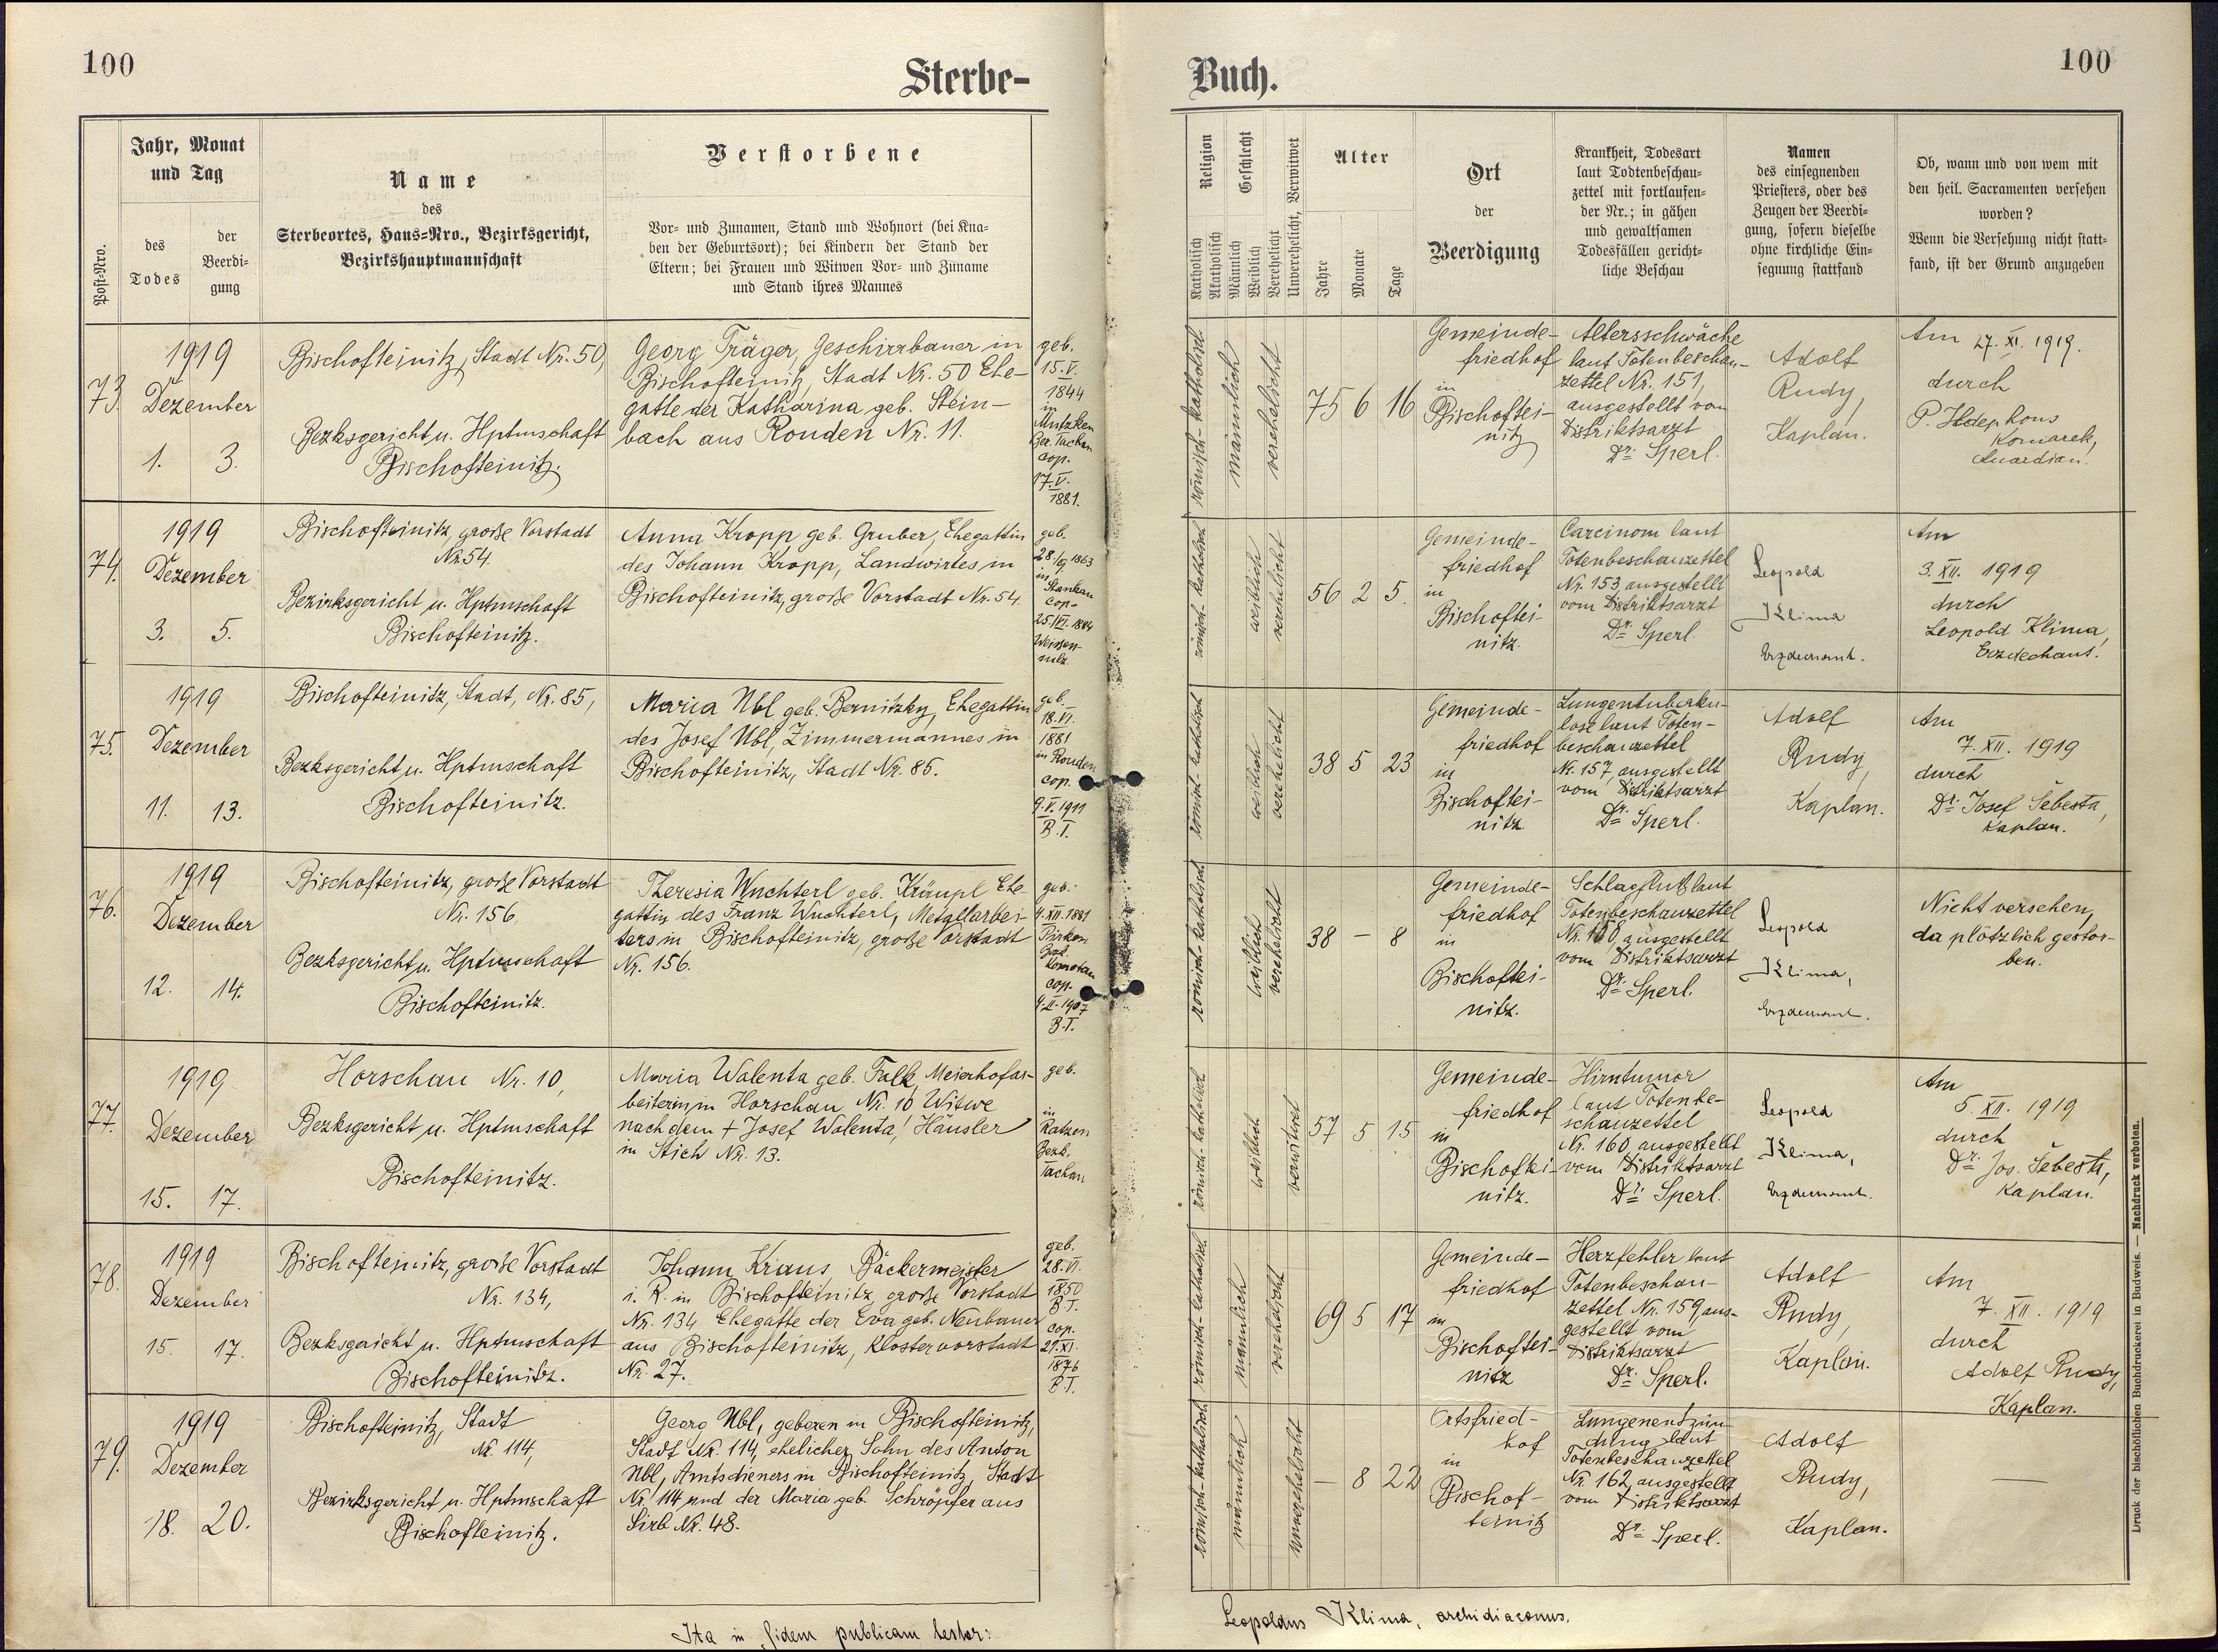 100
Sterbe-
Jahr, Monat
und Tag
Post-Nro.
des
Todes
der
Beerdi-
gung
Name
des
Sterbeortes, Haus-Nro., Bezirksgericht,
Bezirkshauptmannschaft
Verstorbene
Vor- und Zunamen, Stand und Wohnort (bei Kna-
ben der Geburtsort); bei Kindern der Stand der
Eltern; bei Frauen und Witwen Vor- und Zuname
und Stand ihres Mannes
73.
1919
Dezember
1. 3.
Bischofteinitz, Stadt Nr. 50,
Bezksgericht u. Hptmschaft
Bischofteinitz.
Georg Träger, Geschirrbauer in
Bischofteinitz, Stadt Nr. 50 Ehe-
gatte der Katharina geb. Stein-
bach aus Ronden Nr. 11.
geb.
15. V.
1844
in
Mutzken
Bez. Tachau
cop.
17. V.
1881.
74.
1919
Dezember
3. 5.
Bischofteinitz, große Vorstadt
Nr. 54.
Bezirksgericht u. Hptmschaft
Bischofteinitz.
Anna Kropp geb. Gruber, Ehegattin
des Johann Kropp, Landwirtes in
Bischofteinitz, große Vorstadt Nr. 54.
geb.
28./9. 1863
in
Stankau
cop.
25./VI. 1884
Weissen-
sulz.
75.
1919
Dezember
11. 13.
Bischofteinitz, Stadt, Nr. 85,
Bezksgericht u. Hptmschaft
Bischofteinitz.
Maria Ubl geb. Bernitzky, Ehegattin
des Josef Ubl, Zimmermannes in
Bischofteinitz, Stadt Nr. 85.
geb.
18. VI.
1881
in Ronden
cop.
9. V. 1911
B. T.
76.
1919
Dezember
12. 14.
Bischofteinitz, große Vorstadt
Nr. 156.
Bezksgericht u. Hptmschaft
Bischofteinitz.
Theresia Wuchterl geb. Kräupl Ehe
gattin des Franz Wuchterl, Metallarbei-
ters in Bischofteinitz, große Vorstadt
Nr. 156.
geb.
4. XII. 1881
Pirken
Bez.
Komotau
cop.
4. II. 1907
B. T.
77.
1919
Dezember
15. 17.
Horschau Nr. 10,
Bezksgericht u. Hptmschaft
Bischofteinitz.
Maria Walenta geb. Falk, Meierhofar-
beiterin in Horschau Nr. 10 Witwe
nach dem + Josef Walenta, Häusler
in Stich Nr. 13.
geb.
in
Ratzen
Bezk.
Tachau
78.
1919
Dezember
15. 17.
Bischofteinitz, große Vorstadt
Nr. 134,
Bezksgericht u. Hptmschaft
Bischofteinitz.
Johann Kraus Bäckermeister
i. R. in Bischofteinitz große Vorstadt
Nr. 134 Ehegatte der Eva geb. Neubauer
aus Bischofteinitz, Klostervorstadt
Nr. 27.
geb.
28. VI.
1850
B. T.
cop.
21. XI.
1876
B. T.
79.
1919
Dezember
18. 20.
Bischofteinitz, Stadt
Nr. 114,
Bezirksgericht u. Hptmschaft
Bischofteinitz.
Georg Ubl, geboren in Bischofteinitz,
Stadt Nr. 114, ehelicher Sohn des Anton
Ubl, Amtsdieners in Bischofteinitz, Stadt
Nr. 114 und der Maria geb. Schröpfer aus
Sirb Nr. 48.
Ita in fidem publicam testor:
Buch.
100
Religion
Katholisch
Akatholisch
Geschlecht
Männlich
Weiblich
Verehelicht
Unverehelicht, Verwitwet
Alter
Jahre
Monate
Tage
Ort
der
Beerdigung
Krankheit, Todesart
laut Todtenbeschau-
zettel mit fortlaufen-
der Nr.; in gähen
und gewaltsamen
Todesfällen gericht-
liche Beschau
Namen
des einsegnenden
Priesters, oder des
Zeugen der Beerdi-
gung, sofern dieselbe
ohne kirchliche Ein-
segnung stattfand
Ob, wann und von wem mit
den heil. Sacramenten versehen
worden?
Wenn die Versehung nicht statt-
fand, ist der Grund anzugeben
römisch-katholisch
männlich
verehelicht
75 6 16
Gemeinde-
friedhof
in
Bischoftei-
nitz
Altersschwäche
laut Totenbeschau-
zettel Nr. 151,
ausgestellt vom
Distriktsarzt
Dr. Sperl.
Adolf
Rudy,
Kaplan.
Am 27. XI. 1919.
durch
P. Ildephons
Komarek,
Guardian.
römisch-katholisch
weiblich
verehelicht
56 2 5.
Gemeinde-
friedhof
in
Bischoftei-
nitz.
Carcinom laut
Totenbeschauzettel
Nr. 153, ausgestellt
vom Distriktsarzt
Dr. Sperl.
Leopold
Klima
Erzdechant.
Am
3. XII. 1919
durch
Leopold Klima,
Erzdechant.
römisch-katholisch
weiblich
verehelicht
38 5 23
Gemeinde-
friedhof
in
Bischoftei-
nitz.
Lungentuberku-
lose laut Toten-
beschauzettel
Nr. 157, ausgestellt
vom Distriktsarzt
Dr. Sperl.
Adolf
Rudy,
Kaplan.
Am
7. XII. 1919
durch
Dr. Josef Šebesta,
Kaplan.
römisch-katholisch
weiblich
verehelicht
38 - 8
Gemeinde-
friedhof
in
Bischoftei-
nitz.
Schlagfluß laut
Totenbeschauzettel
ausgestellt
vom Distriktsarzt
Dr. Sperl.
Leopold
Klima,
Erzdechant.
Nicht versehen,
da plötzlich gestor-
ben.
römisch-katholisch
weiblich
verwitwet
57 5 15
Gemeinde-
friedhof
in
Bischoftei-
nitz.
Hirntumor
laut Totenbe-
schauzettel
Nr. 160 ausgestellt
vom Distriktsarzt
Dr. Sperl.
Leopold
Klima,
Erzdechant.
Am
5. XII. 1919
durch
Dr. Jos. Šebesta,
Kaplan.
römisch-katholisch
männlich
verehelicht
69 5 17
Gemeinde-
friedhof
in
Bischoftei-
nitz
Herzfehler laut
Totenbeschau-
zettel Nr. 159, aus-
gestellt vom
Distriktsarzt
Dr. Sperl.
Adolf
Rudy,
Kaplan.
Am
7. XII. 1919
durch
Adolf Rudy,
Kaplan.
römisch-katholisch
männlich
unverehelicht
- 8 22
Ortsfried-
hof
in
Bischof-
teinitz
Lungenentzün-
dung laut
Totenbeschauzettel
Nr. 162, ausgestellt
vom Distriktsarzt
Dr. Sperl.
Adolf
Rudy,
Kaplan.
—
Leopoldus Klima, archidiaconus.
Druck der bischöflichen Buchdruckerei in Budweis. — Nachdruck verboten.